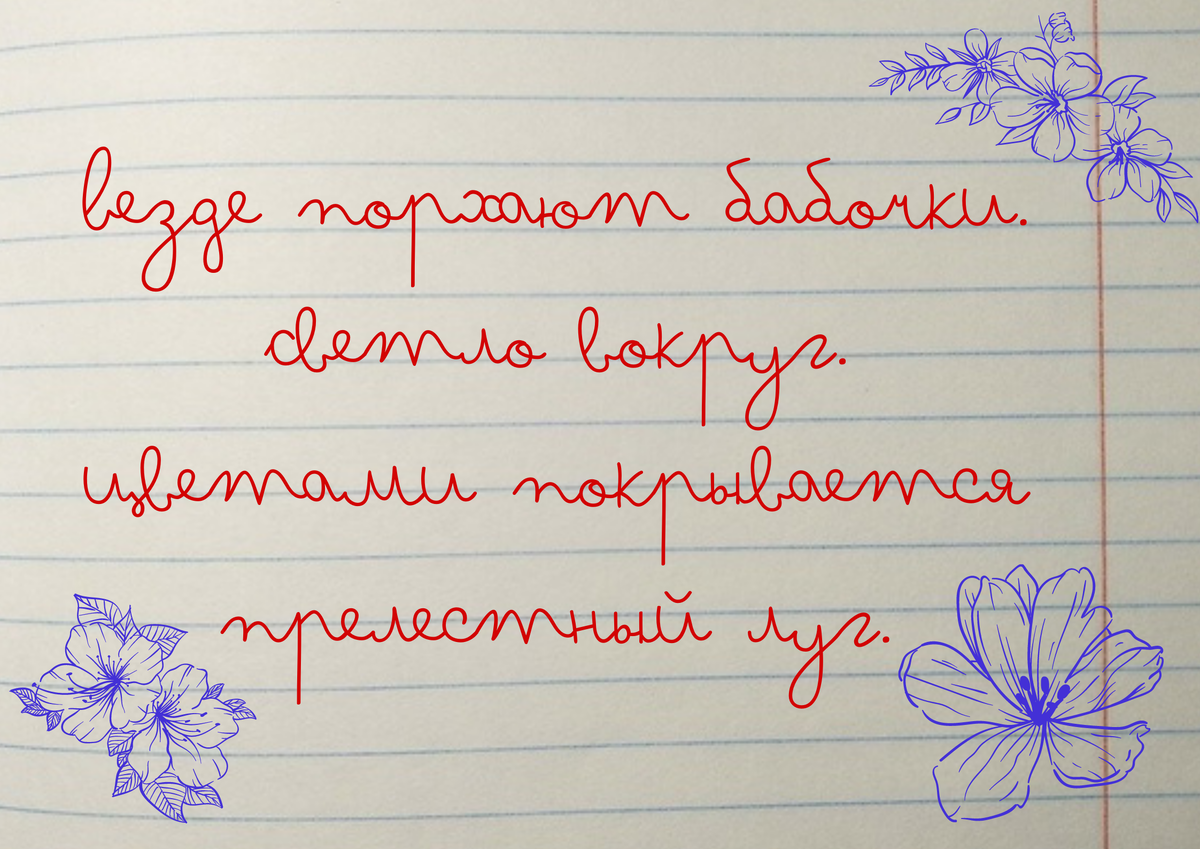 везде порхают бабочки.
светло вокруг.
цветами покрывается
прелестный луг.